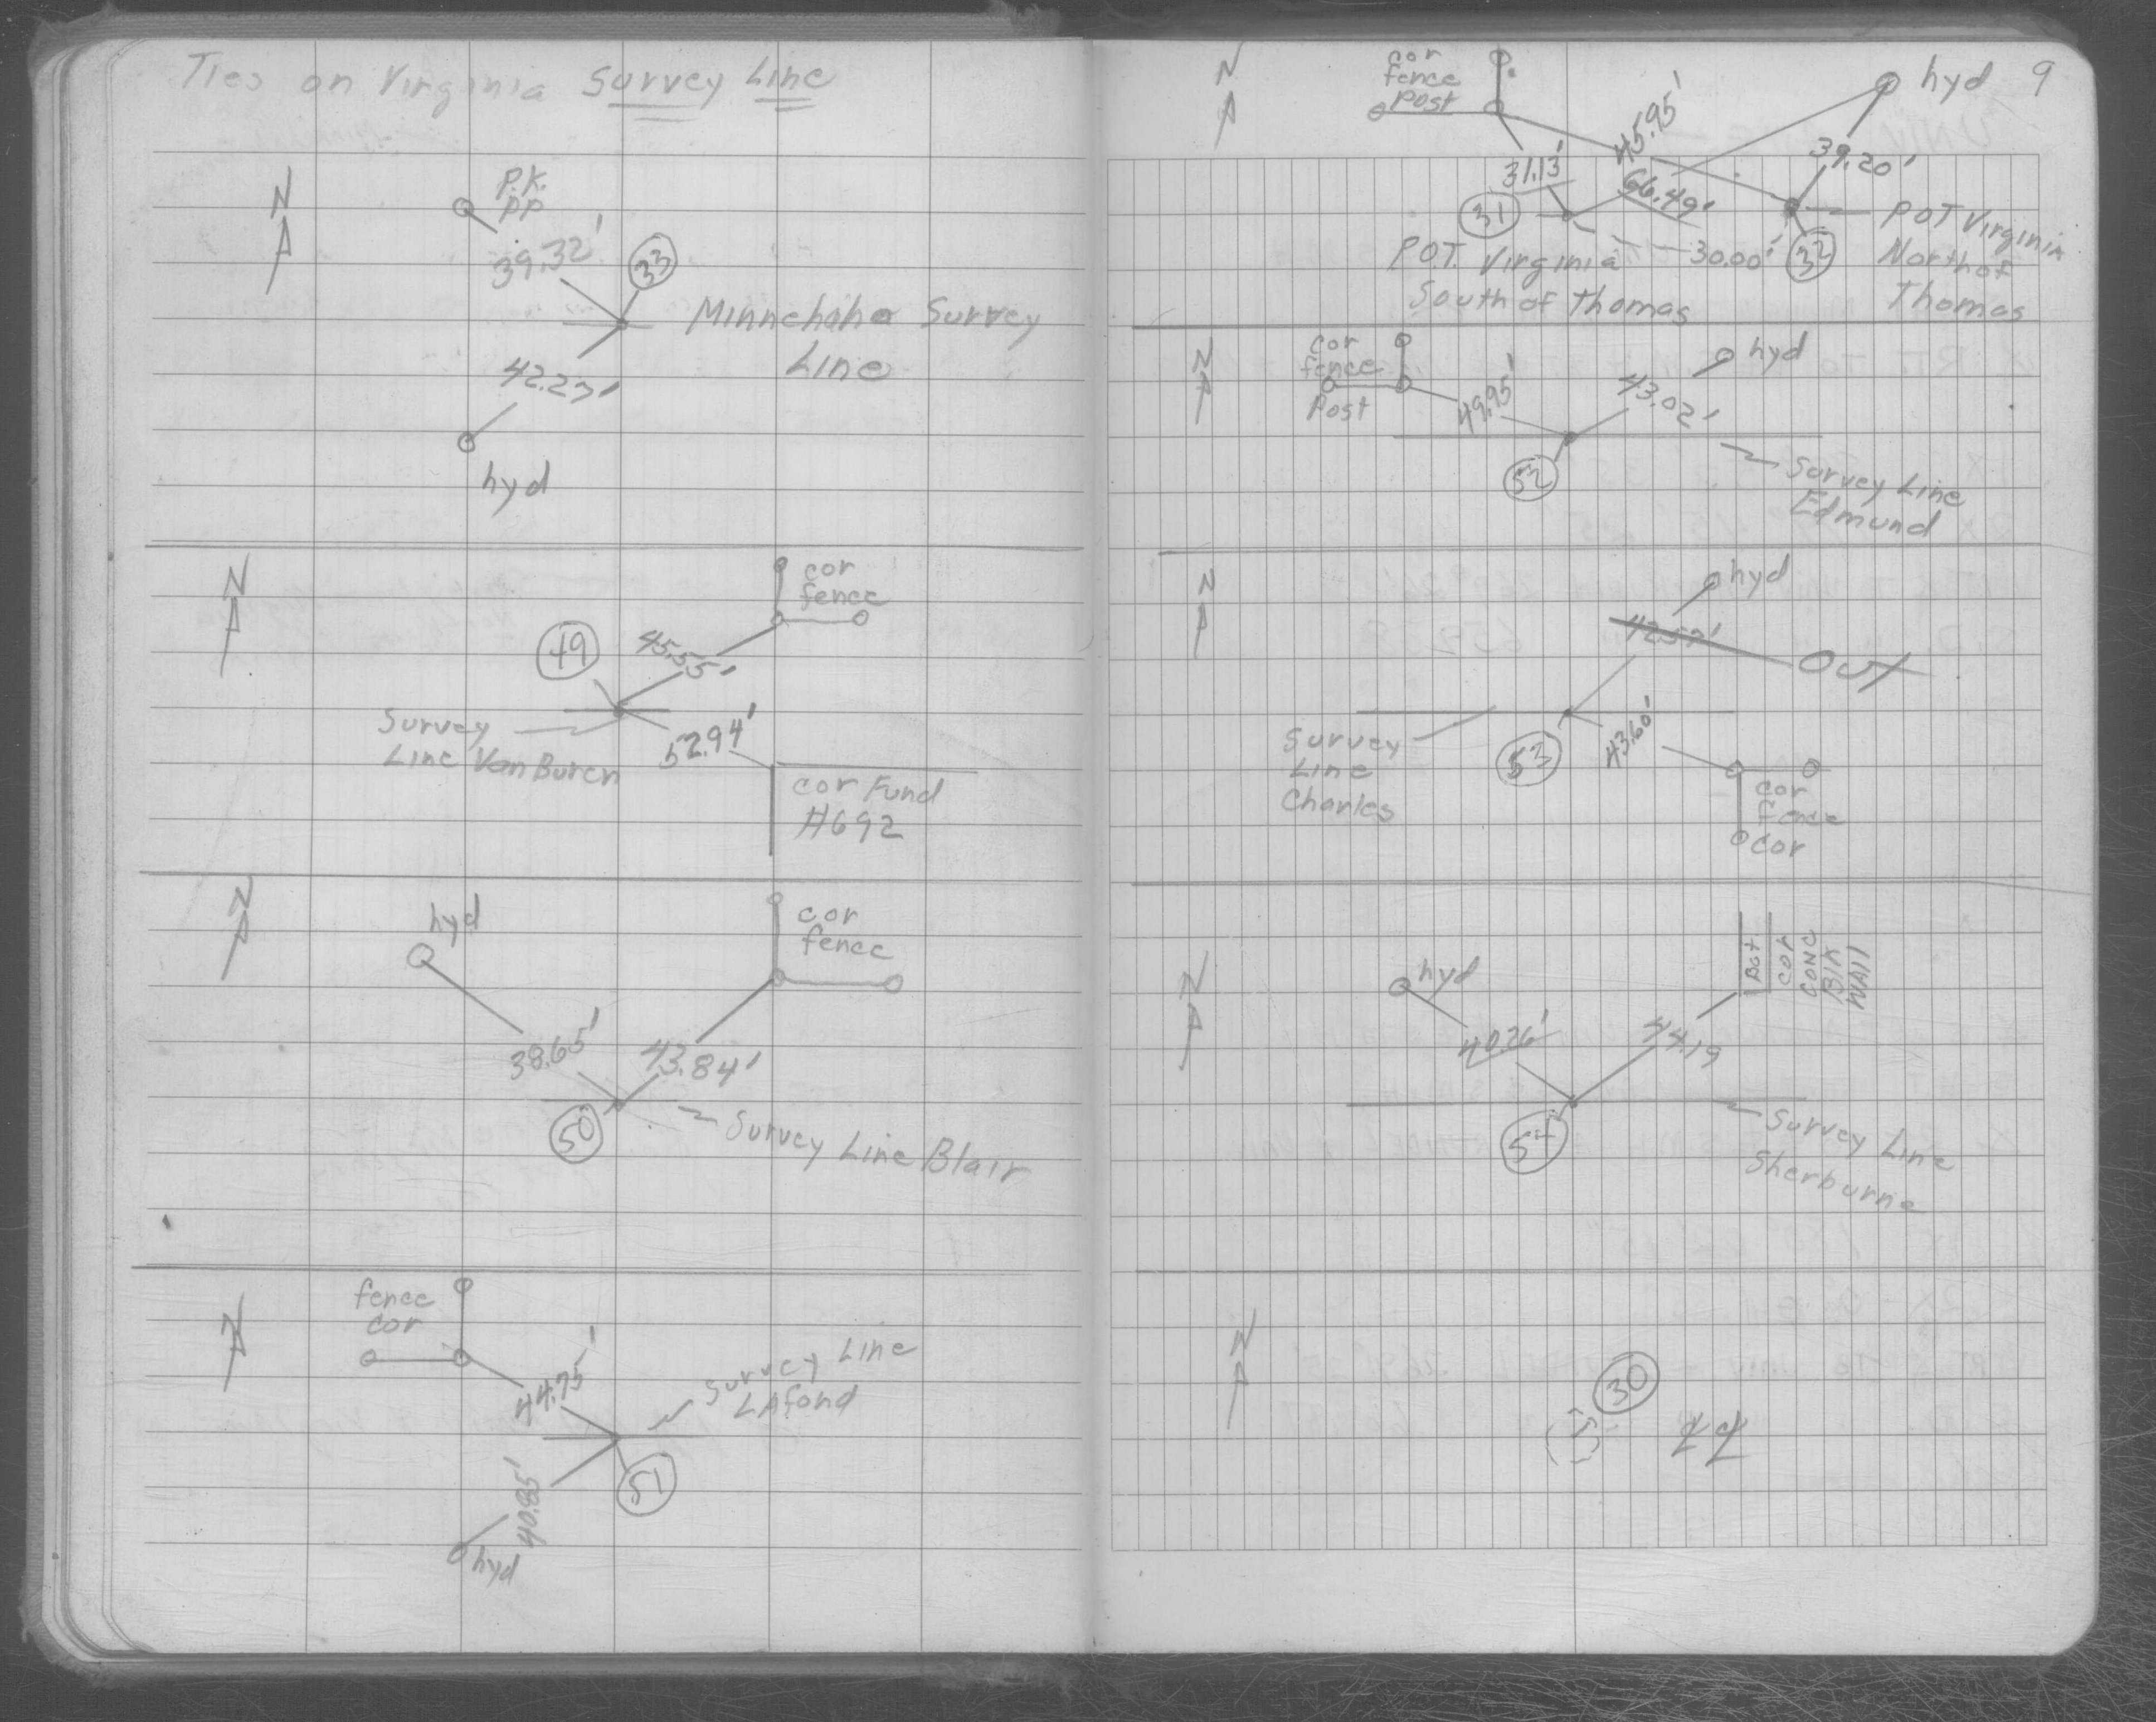 Ties on Virginia Survey Line
N
P.K.
PP
39.32'
33
Minnehaha Survey
Line
42.23'
hyd
N
cor
fence
49
45.55'
Survey
Line Van Buren
52.94'
cor Fund
#692
N
hyd
cor
fence
38.65'
43.84'
50
Survey Line Blair
N
fence
cor
44.75'
Survey Line
LAfond
51
40.85'
hyd
9
N
cor
fence
Post
hyd
45.95'
31.13'
39.20'
66.49'
31
30.00'
32
P.O.T. Virginia
South of Thomas
POT Virginia
North of
Thomas
N
cor
fence
Post
hyd
49.95'
43.02'
52
Survey Line
Edmund
N
hyd
OUT
Survey
Line
Charles
53
43.60'
cor
fence
cor
N
hyd
Bot
cor
conc
Blk
WAll
40.26'
44.19
54
Survey Line
Sherburne
N
30